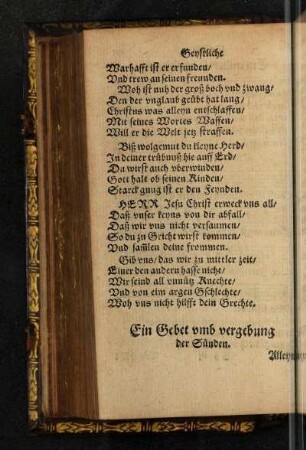 Geystliche
Warhafft ist er erfunden/
Vnd trew an seinen freunden.
Woh ist nuh der groß boch vnd zwang/
Den der vnglaub geübt hat lang/
Christus was alleyn entschlaffen/
Mit seines Wortes Waffen/
Will er die Welt jetz straffen.
Biß wolgemut du kleyne Herd/
In deiner trübnuß hie auff Erd/
Du wirst auch vberwinden/
Gott halt ob seinen Kinden/
Starck gnug ist er den Feynden.
HERR Jesu Christ erweck vns all/
Daß vnser keyns von dir abfall/
Daß wir vns nicht versaumen/
So du zu Gricht wirst kommen/
Vnd samlen deine frommen.
Gib vns/ das wir zu mitler zeit/
Einer den andern hasse nicht/
Wir seind all vnnütz Knechte/
Vnd von eim argen Gschlechte/
Woh vns nicht hilfft dein Grechte.
Ein Gebet vmb vergebung
der Sünden.